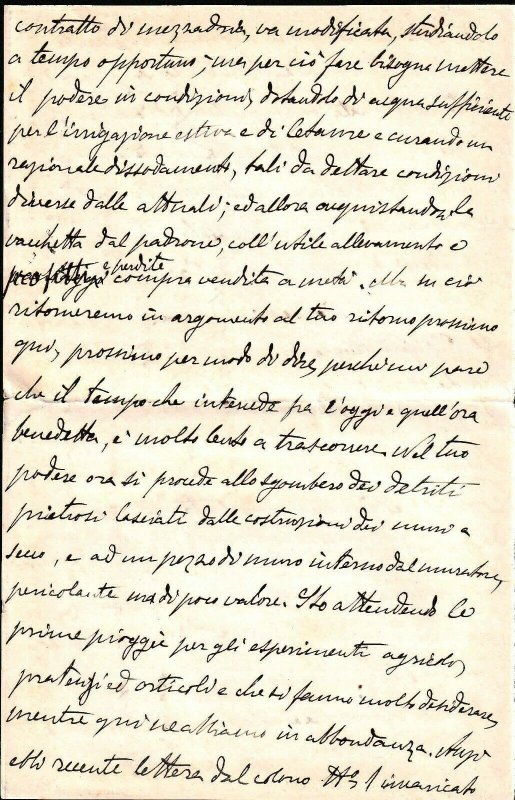 contratto di mezzadria, va modificata, studiandolo
a tempo opportuno; ma per ciò fare bisogna mettere
il podere in condizioni, dotandolo di acqua sufficiente
per l'irrigazione estiva e di letame e curando un
razionale dissodamento, tali da dettare condizioni
diverse dalle attuali; ed allora acquistandosi la
vacchetta dal padrone, coll'utile allevamento e
profitti e perdite compra vendita a metà. Ma su ciò
ritorneremo in argomento al tuo ritorno prossimo
qui, prossimo per modo di dire, perchè mi pare
che il tempo che intercede fra l'oggi e quell'ora
benedetta, è molto lento a trascorrere. Nel tuo
podere ora si procede allo sgombero dei detriti
pietrosi lasciati dalle costruzioni dei muri a
secco, e ad un pezzo di muro interno dal muratore,
pericolante ma di poco valore. Sto attendendo le
prime pioggie per gli esperimenti agricoli,
pratensi ed orticoli e che si fanno molto desiderare,
mentre qui ne abbiamo in abbondanza. Anzi
ebbi recente lettera dal colono